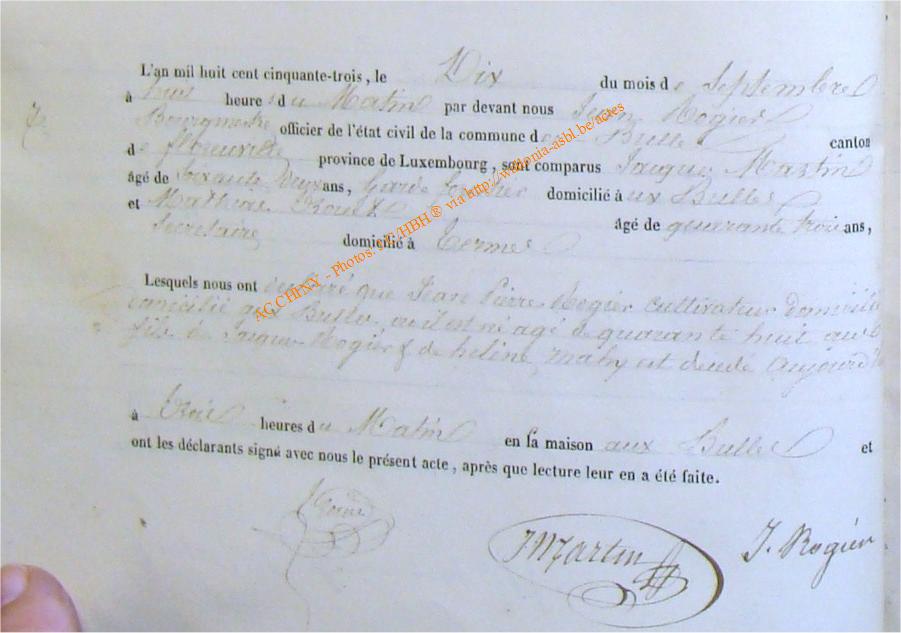 L'an mil huit cent cinquante-trois, le Dix du mois de Septembre
à huit heures du Matin par devant nous Jean Rogier
Bourgmestre officier de l'état civil de la commune de Bulle canton
de florenville province de Luxembourg, sont comparus Jacque Martin
âgé de Soixante ans, Garde domicilié à ux Bulles
et Mathias âgé de quarante trois ans,
Secretaire domicilié à Termes
Lesquels nous ont déclaré que Jean Pierre Rogier cultivateur domicilié
domicilié aux Bulles, ou il est né agé de quarante huit ans
fils de Jacque Rogier & de helène mahy est décédé aujourd'
à trois heures du Matin en sa maison aux Bulles et
ont les déclarants signé avec nous le présent acte, après que lecture leur en a été faite.
JMartin J. Rogier
AC CHINY - Photos. FC/HBH® via http://wallonia-asbl.be/actes